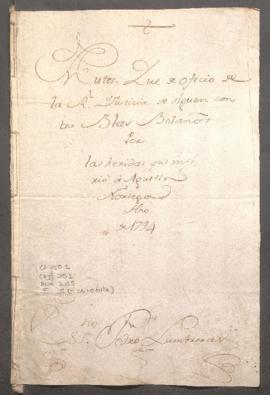 Autos Que de oficio de
la Rl. Justicia se siguen con
tra Blas Bolaños
Por
las heridas que infi
rió à Agustin
Noriega
Año
de 1794
Pedro Lumbreras